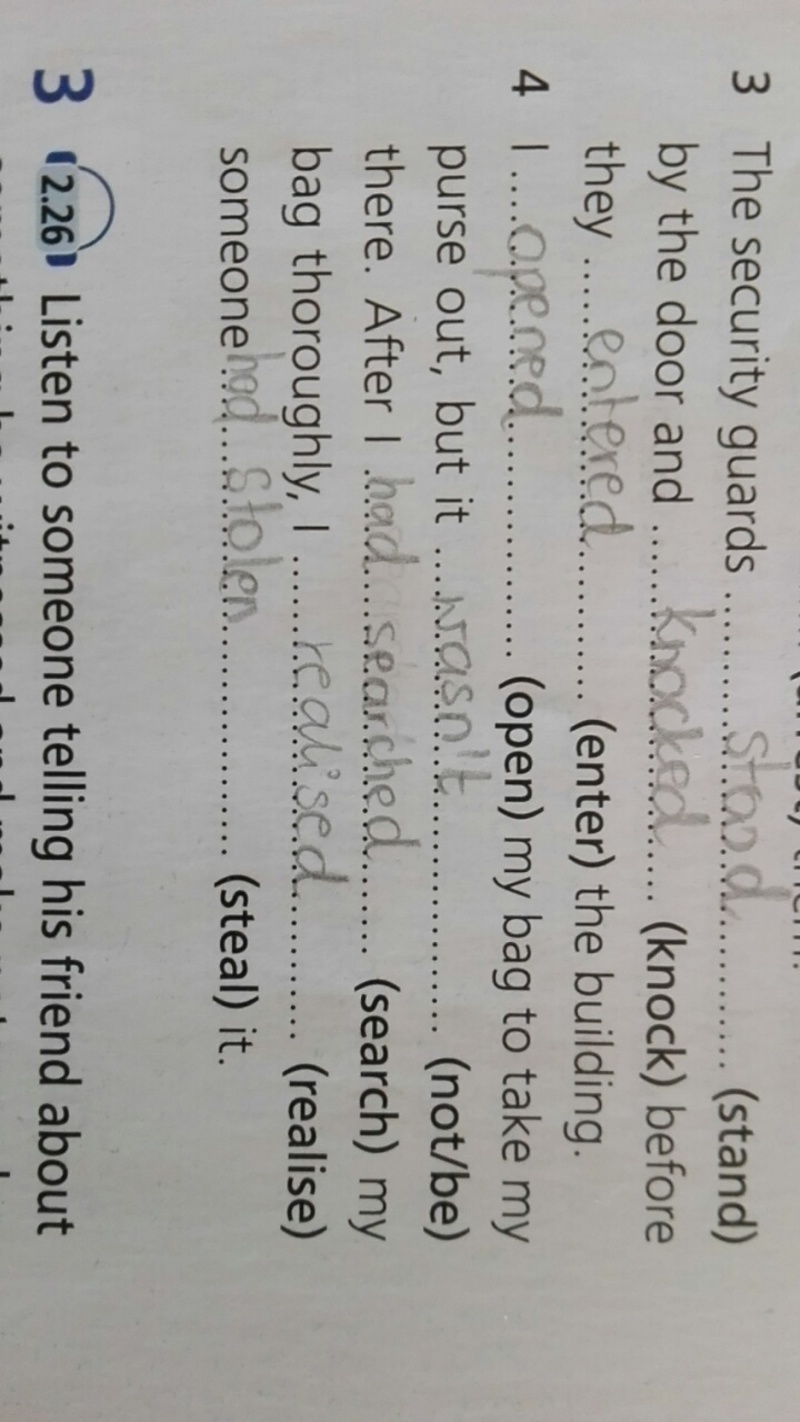 3 The security guards ..........stood.......... (stand)
by the door and ......knocked...... (knock) before
they ......entered............ (enter) the building.
4 I ....opened................ (open) my bag to take my
purse out, but it ....wasn't................ (not/be)
there. After I .had searched....... (search) my
bag thoroughly, I ......realised.......... (realise)
someone had stolen................ (steal) it.
3 2.26 Listen to someone telling his friend about